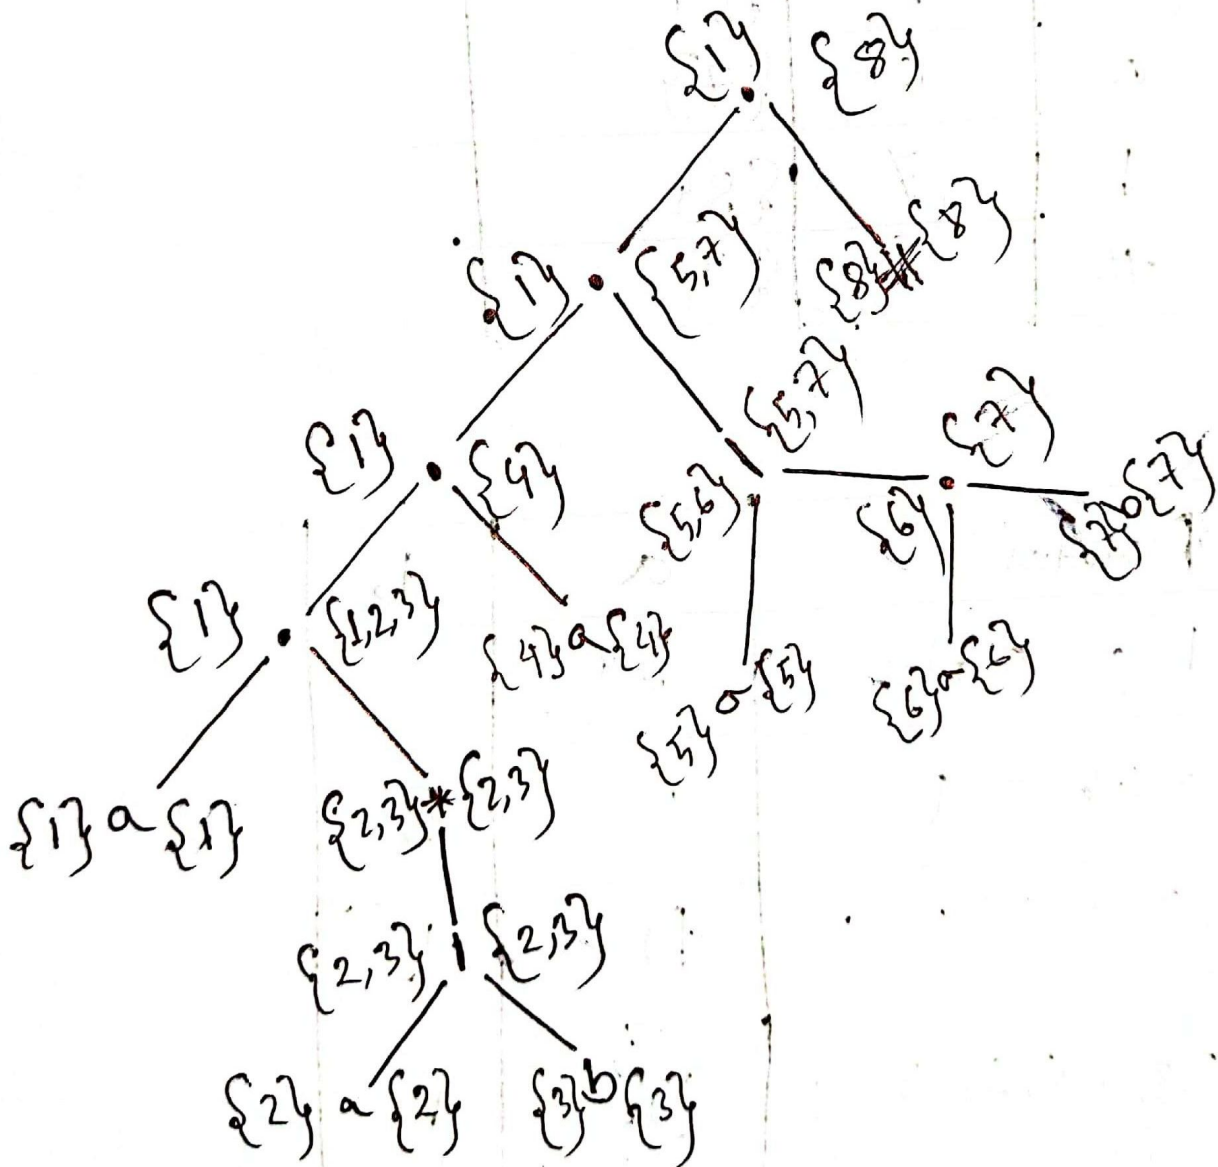 {1} {8}
•
{1} • {5,7} {8} # {8}
{1} • {4} {5,6} | {5,7} {6} • {7} {7} b {7}
{1} • {1,2,3} {4} a {4} {5} a {5} {6} a {6}
{1} a {1} {2,3} * {2,3}
{2,3} | {2,3}
{2} a {2} {3} b {3}